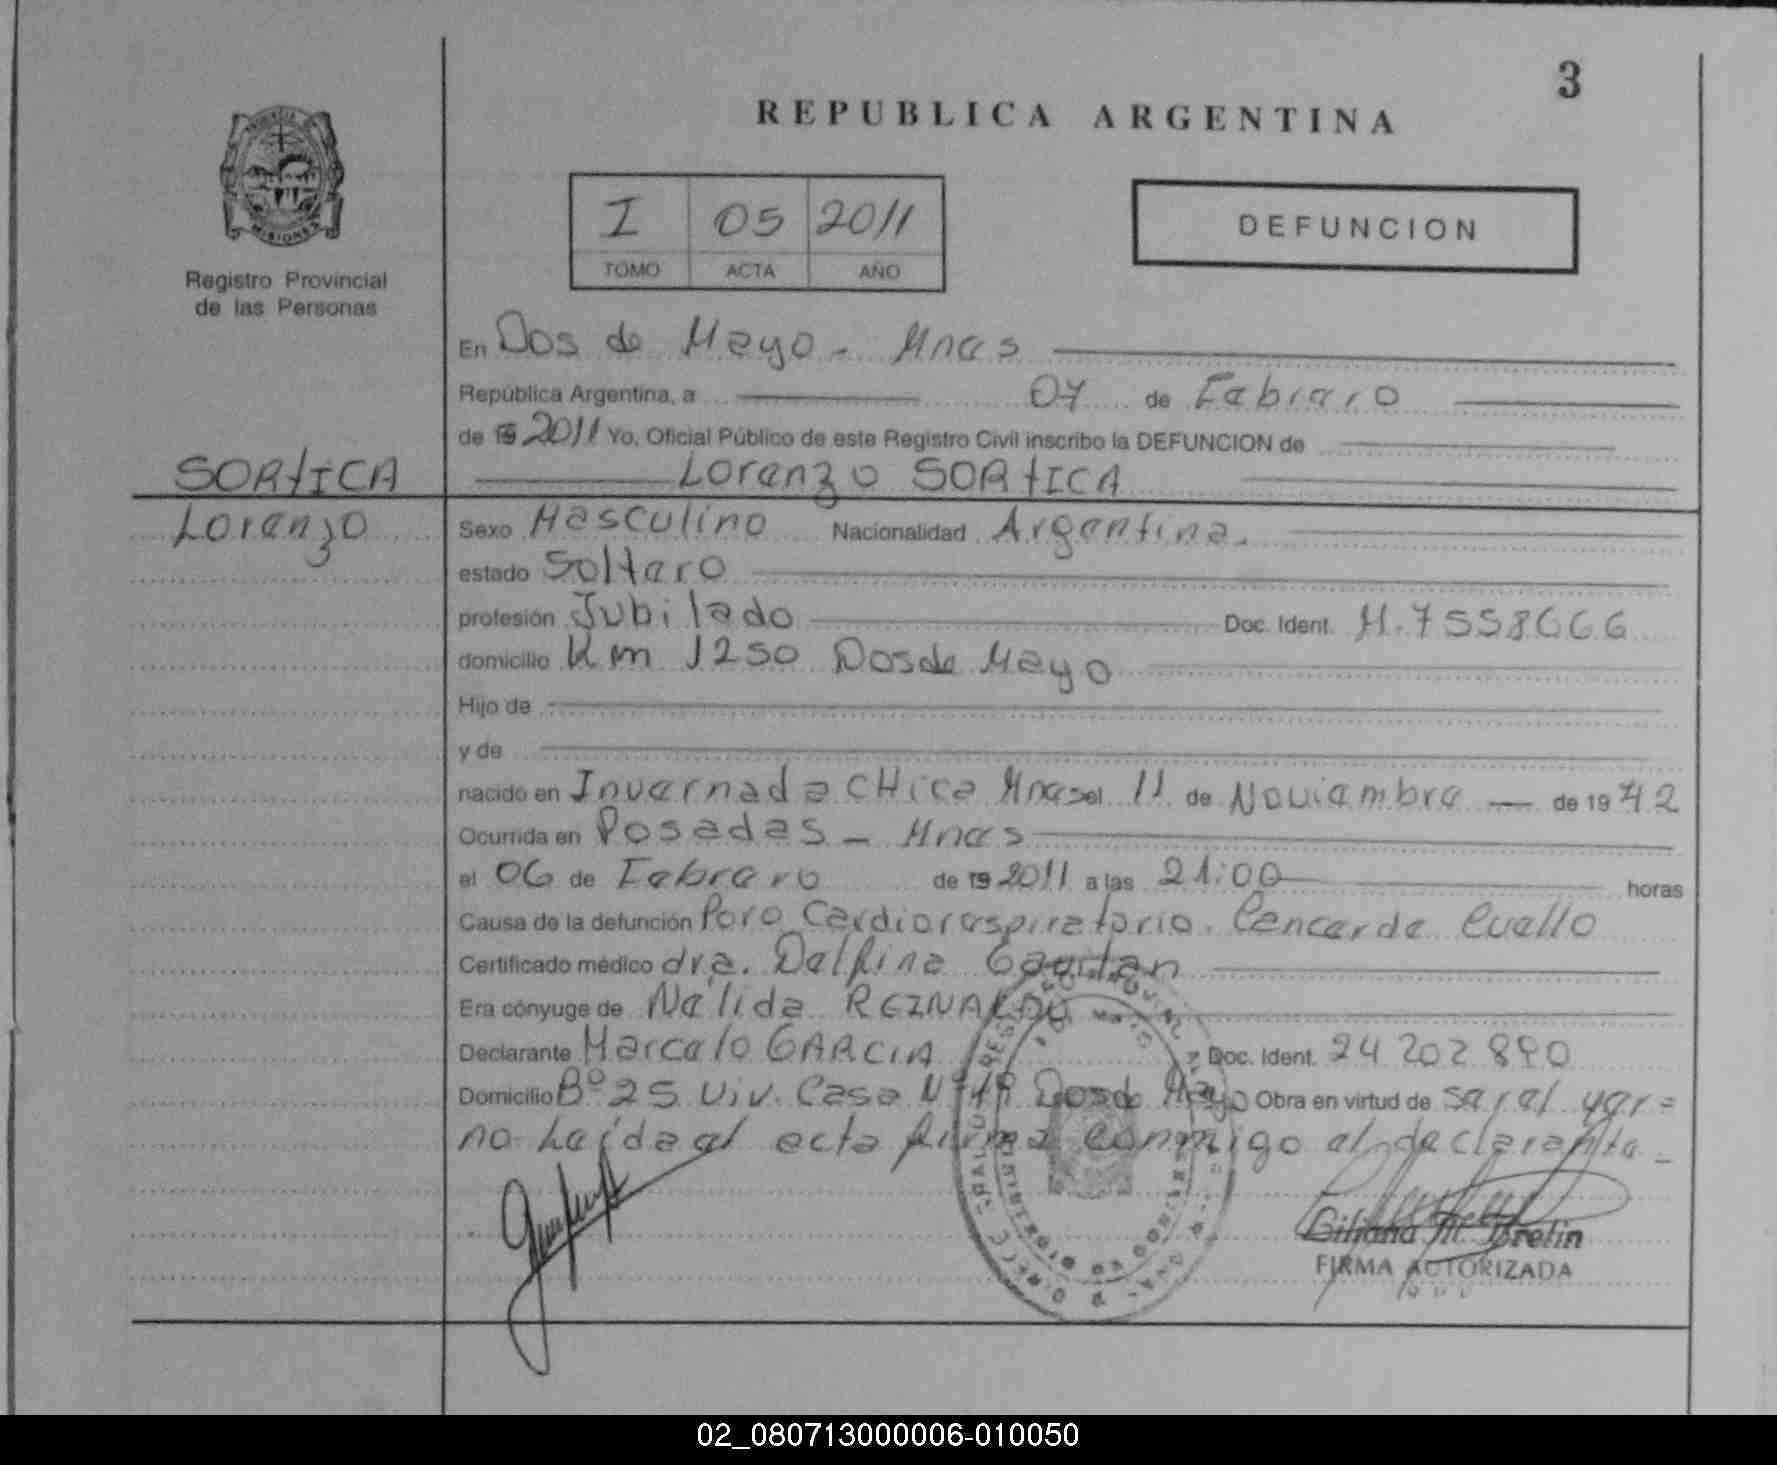 3
REPUBLICA ARGENTINA
I 05 2011
TOMO ACTA AÑO
DEFUNCION
MISIONES
Registro Provincial
de las Personas
En Dos de Mayo - Mnes
República Argentina, a 07 de Febrero
de 19 2011 Yo, Oficial Público de este Registro Civil inscribo la DEFUNCION de
Lorenzo SORtICA
SORtICA
Lorenzo
Sexo Masculino Nacionalidad Argentina.
estado Soltero
profesión Jubilado Doc. Ident. M.7558666
domicilio Km 1250 Dos de Mayo
Hijo de
y de
nacido en Invernada CHica Mnes el 11 de Noviembre de 19 42
Ocurrida en Posadas - Mnes
el 06 de Febrero de 19 2011 a las 21:00 horas
Causa de la defunción Poro Cardiorespiratorio. Cancer de Cuello
Certificado médico dra. Delfina Gaitan
Era cónyuge de Nélida REINALDO
Declarante Marcelo GARCIA Doc. Ident. 24 202 890
Domicilio Bº 25 Viv. Casa Nº 18 Dos de Mayo Obra en virtud de ser el yer=
no. Leída el acta firma conmigo el declarante -
Giliana M. Brelin
FIRMA AUTORIZADA
02_080713000006-010050